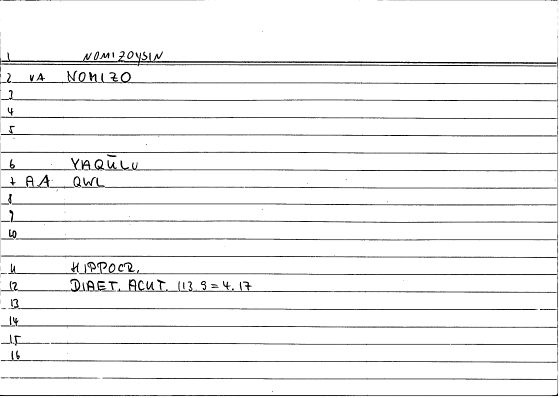 1 NOMIZOYSIN
2 VA NOMIZO
3
4
5
6 YAQŪLU
7 AA QWL
8
9
10
11 HIPPOCR.
12 DIAET. ACUT. 113.9=4.17
13
14
15
16